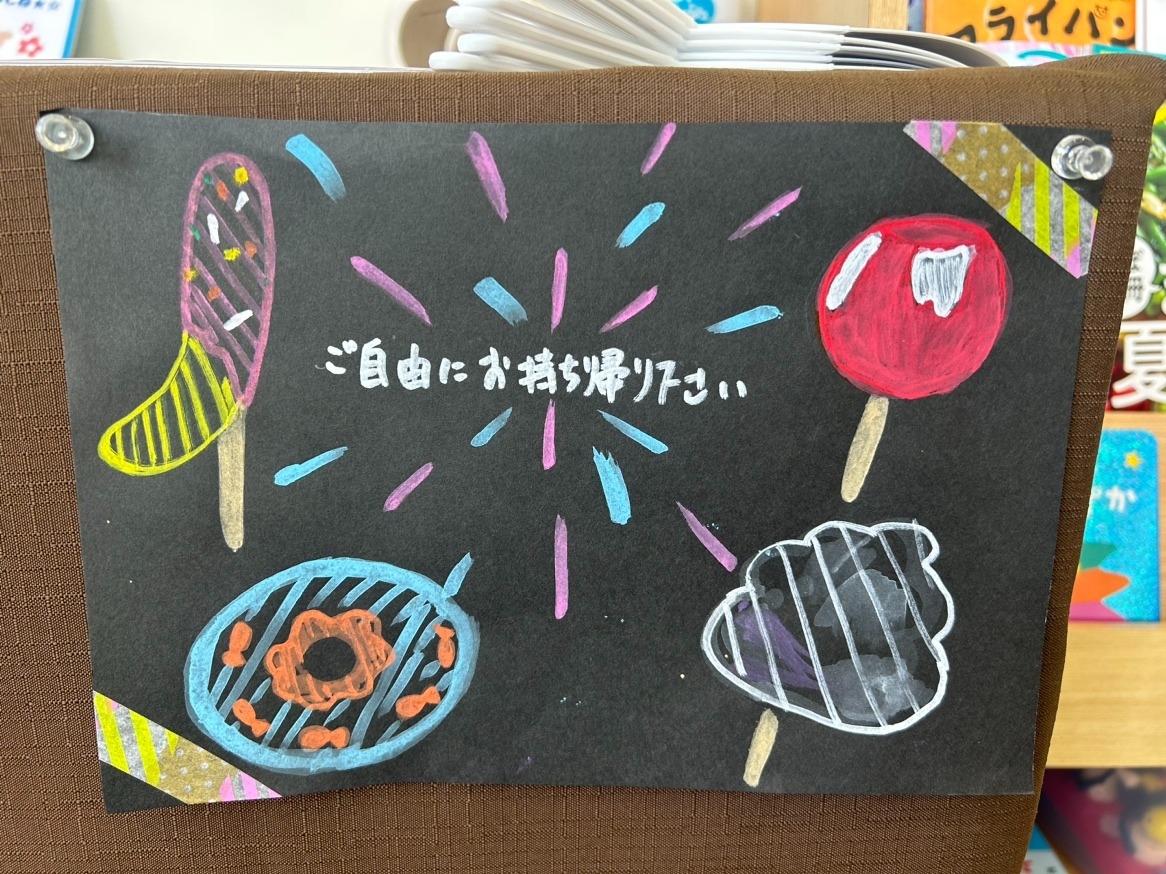 フライパン
ご自由にお持ち帰り下さい
夏
か